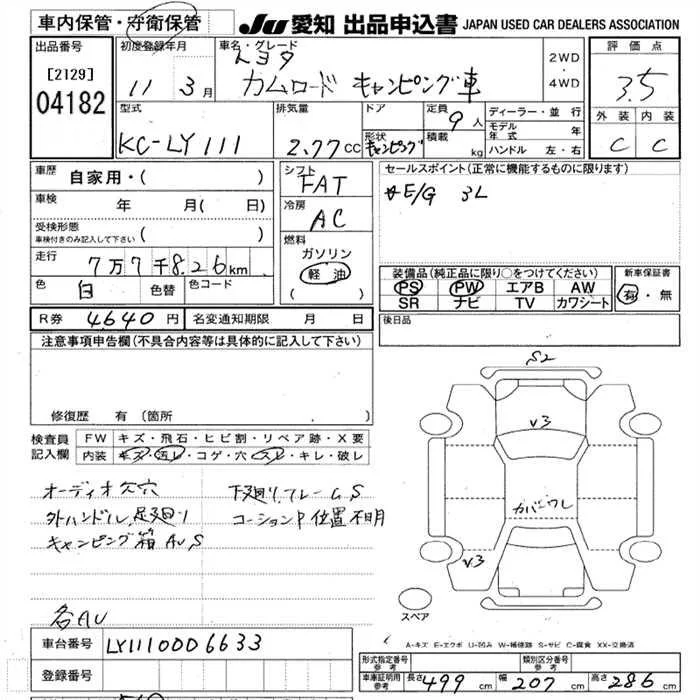 車内保管・守衛保管
JU 愛知 出品申込書 JAPAN USED CAR DEALERS ASSOCIATION
出品番号
[2129]
04182
初度登録年月
11 3月
車名・グレード
トヨタ
カムロード キャンピング車
2WD
・
4WD
評価点
3.5
外装 内装
C C
型式
KC-LY111
排気量
2.77CC
ドア
形状
キャンピング
定員
9人
積載
kg
ディーラー・並行
モデル年式 年
ハンドル 左・右
車歴
自家用・( )
車検
年 月( 日)
受検形態
車検付きのみ記入して下さい ( )
走行
7万7千826km
色
白
色替
色コード
シフト
FAT
冷房
AC
燃料
ガソリン
軽油
( )
セールスポイント(正常に機能するものに限ります)
E/G 3L
装備品(純正品に限り○をつけてください)
PS PW エアB AW
SR ナビ TV カワシート
新車保証書
有・無
R券 4640円 名変通知期限 月 日
後日品
注意事項申告欄(不具合内容等は具体的に記入して下さい)
修復歴 有(箇所 )
検査員
記入欄
FW キズ・飛石・ヒビ割・リペア跡・X要
内装 キズ・汚レ・コゲ・穴・スレ・キレ・破レ
オーディオ欠穴
外ハンドル,足廻り
キャンピング箱 AU,S
下廻り,フレームS
コーションP位置不明
各AU
S2
V3
カバーワレ
V3
スペア
A-キズ E-エクボ U-凹み W-補修跡 S-サビ C-腐食 XX-交換済
車台番号 LY1110006633
登録番号
形式指定番号
参考
類別区分番号
参考
車庫証明用
参考
長さ 499cm 幅 207cm 高さ 286cm